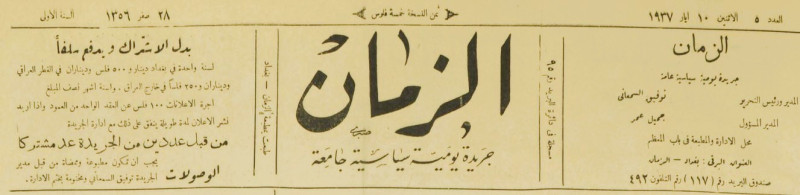 العدد ٥ الاثنين ١٠ ايار ١٩٣٧
ثمن النسخة خمسة فلوس
٢٨ صفر ١٣٥٦ السنة الاولى
الزمان
جريدة يومية سياسية عامة
المدير ورئيس التحرير توفيق السمعاني
المدير المسؤول جميل عمر
محل الادارة والمطبعة في باب المعظم
العنوان البرقي: بغداد — الزمان
صندوق البريد رقم (١١٧) رقم التلفون ٤٩٢
مسجلة في دائرة البريد رقم ٩٥
الزمان
جريدة يومية سياسية جامعة
طبعت بمطبعة الزمان - بغداد
بدل الاشتراك ويدفع سلفاً
لسنة واحدة في بغداد دينار و ٥٠٠ فلس وديناران في القطر العراقي
وديناران و ٢٥٠ فلساً في خارج العراق. ولستة اشهر نصف المبلغ
اجرة الاعلانات ١٠٠ فلس عن العقد الواحد من العمود واذا اريد
نشر الاعلان لمدة طويلة يتفق على ذلك مع ادارة الجريدة
من قبل عددين من الجريدة عد مشتركا
الوصولات يجب ان تكون مطبوعة وممضاة من قبل مدير
الجريدة توفيق السمعاني ومختومة بختم الادارة.